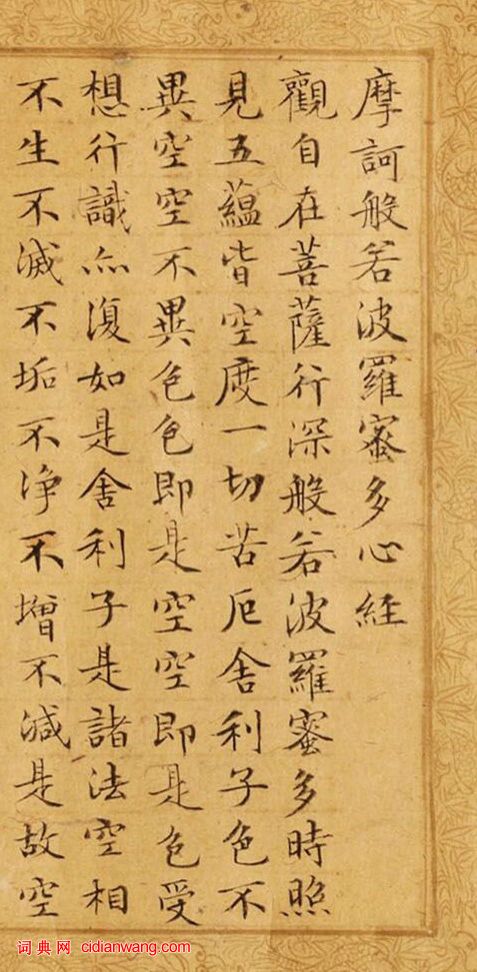 摩訶般若波羅蜜多心経
觀自在菩薩行深般若波羅蜜多時照
見五蘊皆空度一切苦厄舍利子色不
異空空不異色色即是空空即是色受
想行識亦復如是舍利子是諸法空相
不生不滅不垢不净不增不減是故空
词典网 cidianwang.com